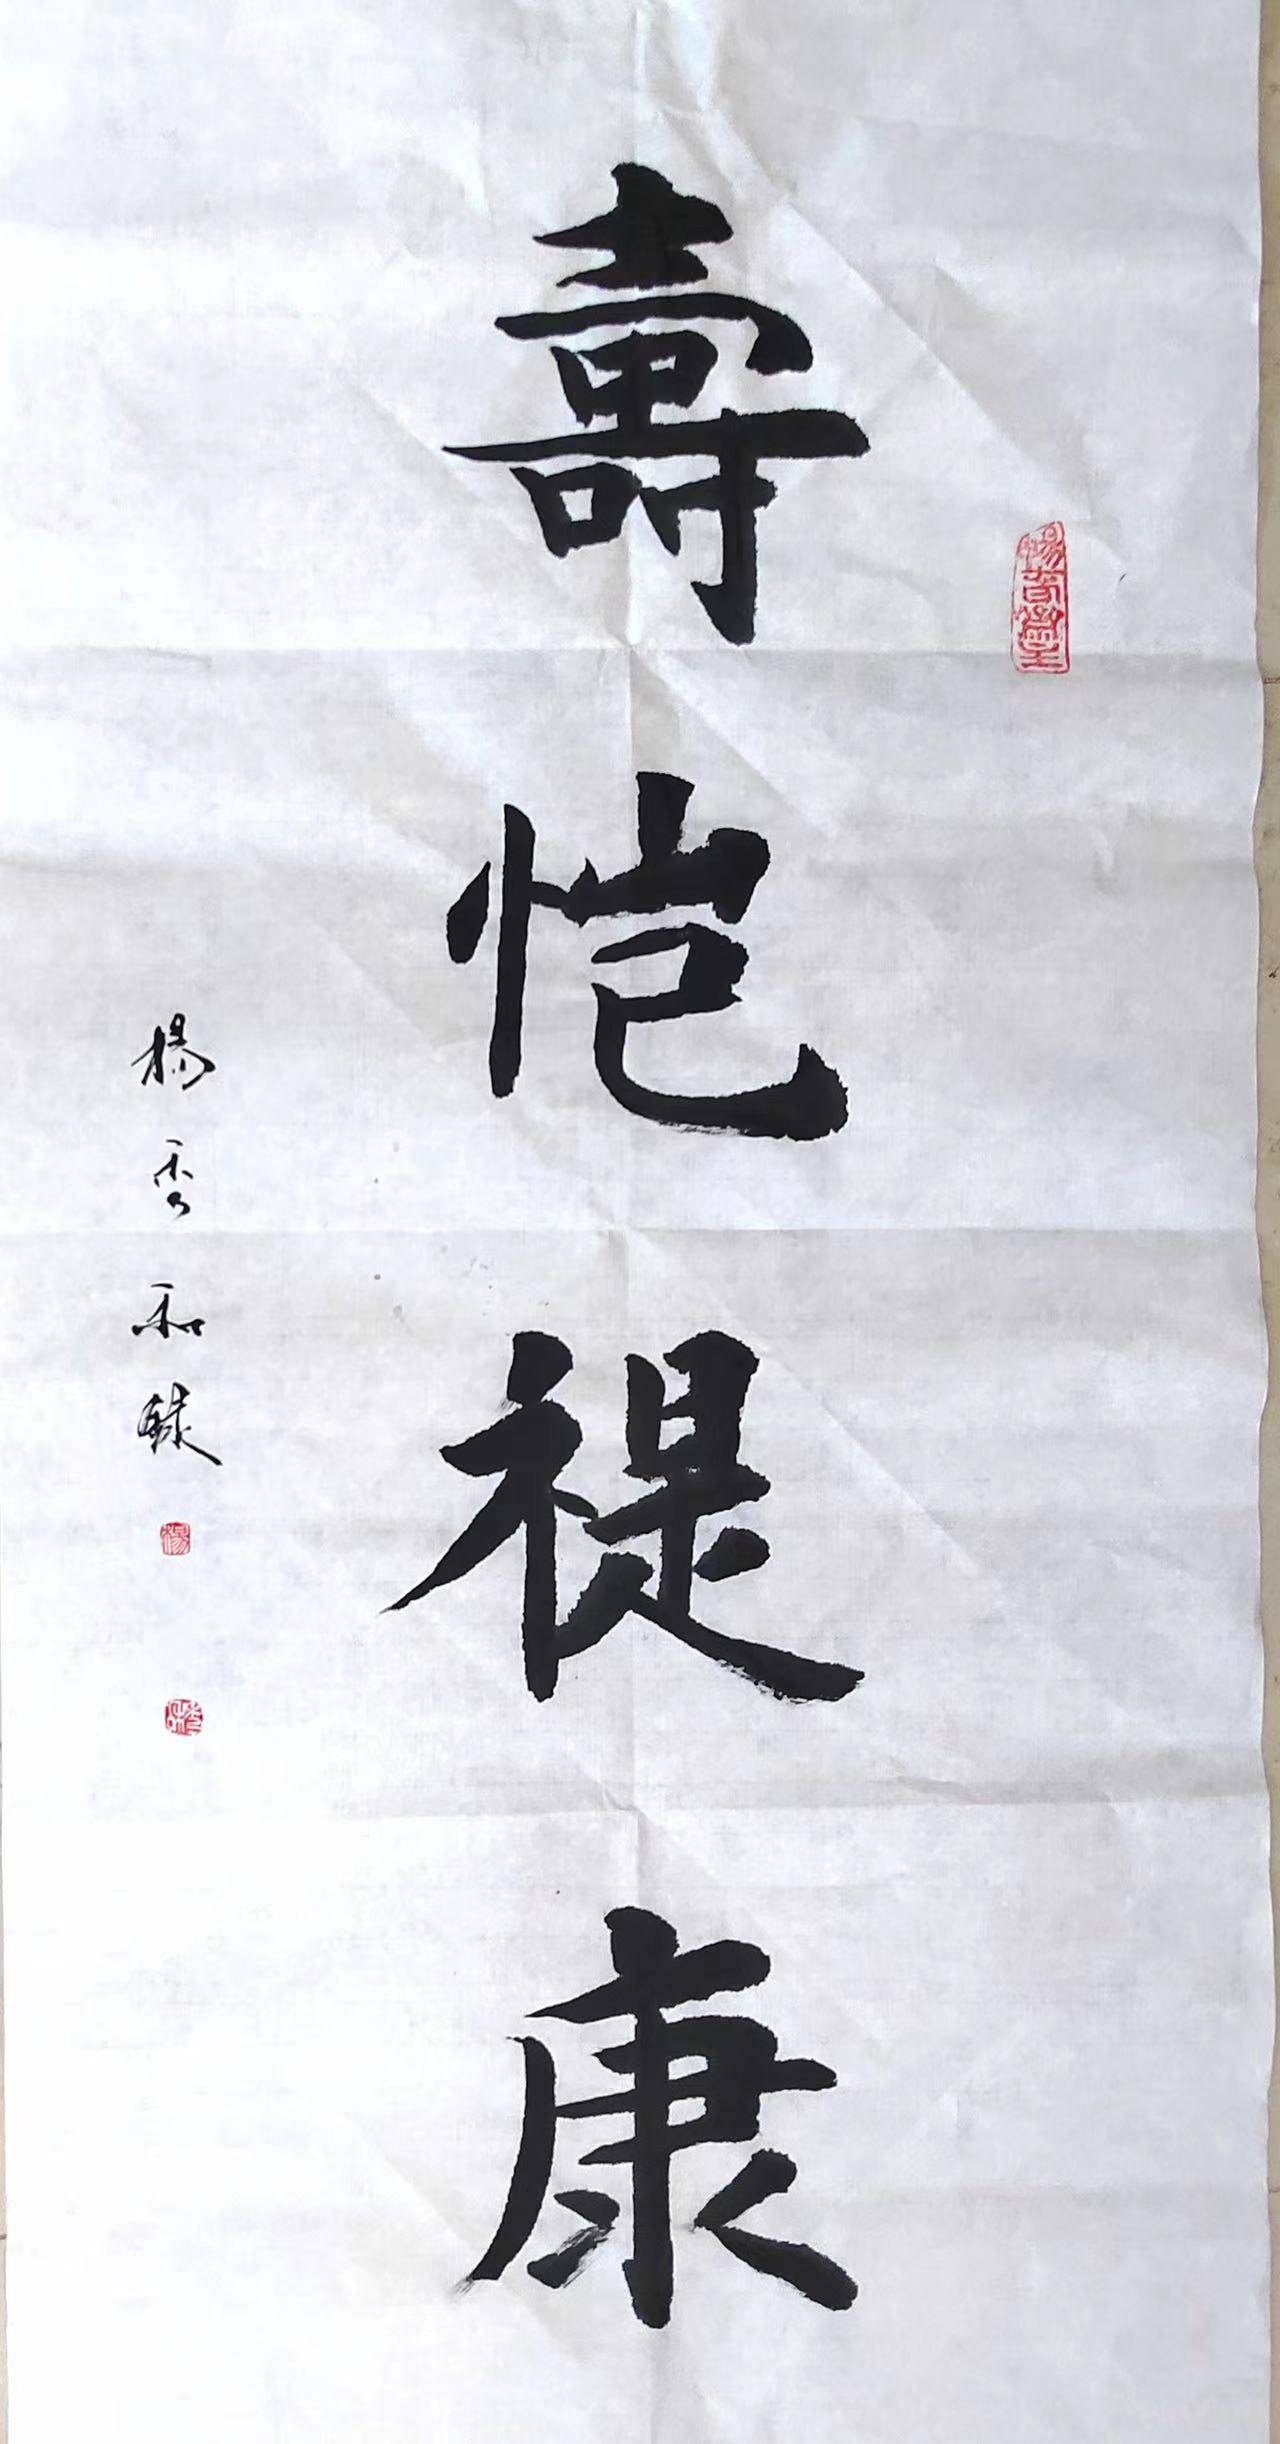 壽恺禔康
楊秀和録